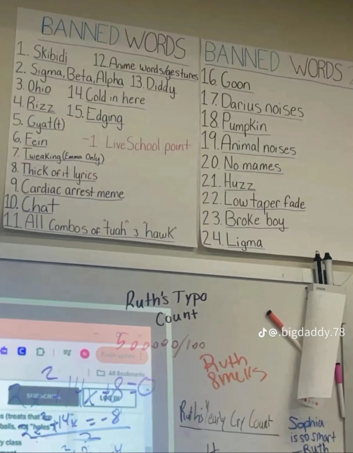 BANNED WORDS
1. Skibidi
2. Sigma, Beta, Alpha
3. Ohio
4. Rizz
5. Gyat(t)
6. Fein
7. Tweaking (Emma Only)
8. Thick of it lyrics
9. Cardiac arrest meme
10. Chat
11. All Combos of "tuah" & "hawk"
12. Anime words/gestures
13 Diddy
14 Cold in here
15. Edging
-1 LiveSchool point
BANNED WORDS
16 Goon
17. Darius noises
18 Pumpkin
19. Animal noises
20 No mames
21. Huzz
22. Low taper fade
23. Broke boy
24. Ligma
Ruth's Typo
Count
500000/100
Ruth
Smells
Ruth's yearly Cry Count
Sophia
is so smart
-Ruth
@.bigdaddy.78
All Bookmarks
2
-14x = -8
(treats that
"holes"
y class